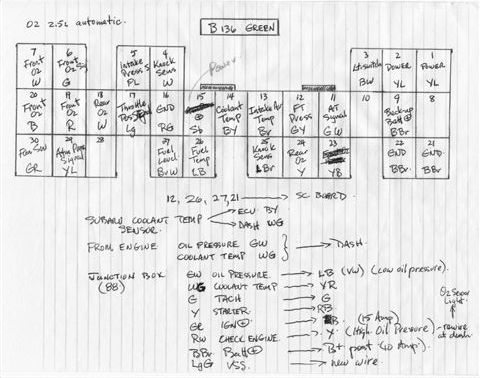 02 2.5L automatic.
B136 GREEN
Power
7 Front O2 W
6 Front O2 G
5 Intake Press S PL
4 Knock Sens W
3 BW
2 POWER YL
1 POWER YL
20 Front O2 B
19 Front O2 R
18 Rear O2 W
17 Throttle Pos Signal Lg
16 GND RG
15 Sb
14 Coolant Temp BY
13 Intake Air Temp Br
12 FT Press GY
11 AT Signal GW
10
9 Backup Batt ⊕ BBr
8
30 Fan SW GR
29 YL
28
27 Fuel Level BrW
26 Fuel Temp LB
25 Knock Sens LBr
24 Rear O2 Y
23 YB
22 GND BBr
21 GND BBr
12, 26, 27, 21 → SC BOARD
SUBARU COOLANT TEMP SENSOR. → ECU BY
→ DASH WG
FROM ENGINE OIL PRESSURE GW
COOLANT TEMP WG } → DASH.
JUNCTION BOX (B8)
GW OIL PRESSURE. → LB (VW) (Low oil pressure).
WG COOLANT TEMP → YR
G TACH → G
Y STARTER → RB
GR IGN ⊕ → B. (15 Amp)
RW CHECK ENGINE. → Y. (High Oil Pressure) - rewire at dash.
O2 Sensor Light.
BBr Batt ⊕ → B+ post (10 Amp).
LgG VSS. → new wire.